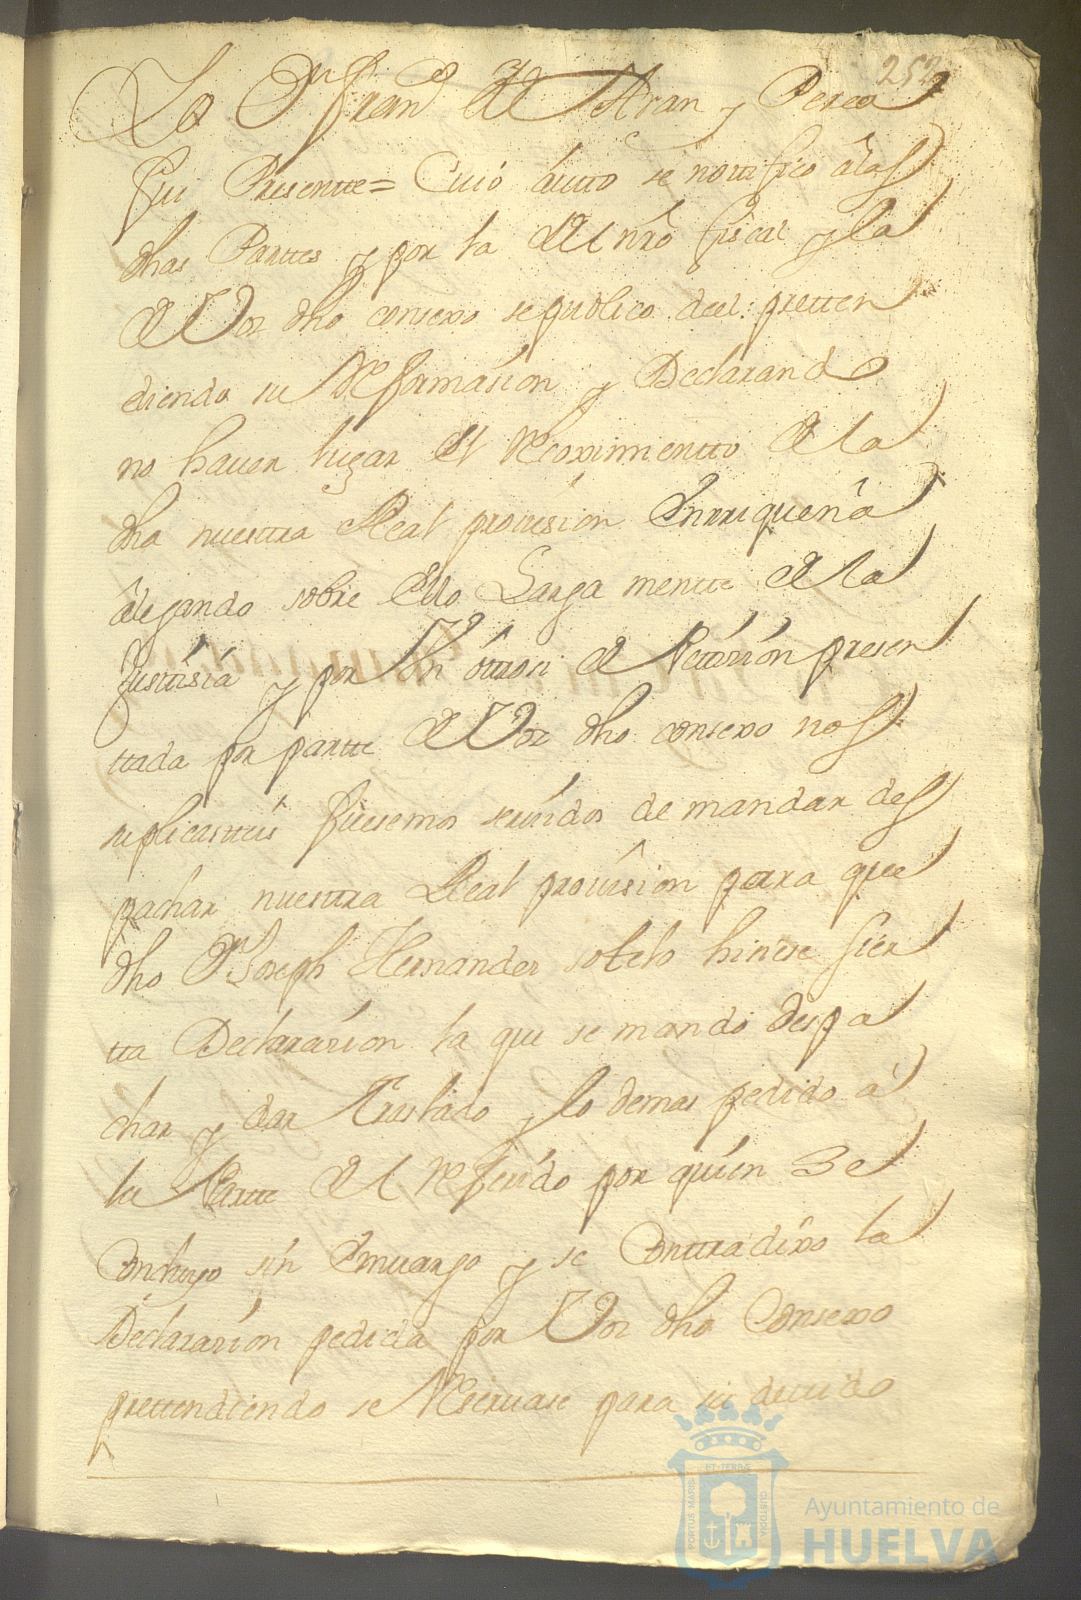 252
Yo Dn. Franco. del Aran y Perea
fui Presentte= Cuio áutto se nottifico álas
dhas Parttes y por la del nro fiscal y la
de Vos dho consexo se suplico deel: pretten
diendo su Reformásion y Declarando
no haver lugar el Recoximientto de la
dha nuestra Real provision Enrriqueña
álegando sobre Ello Larga mentte de la
Justisia y por Un ôttrosi de Petision presen
ttada por partte de Vos dho consexo nos
suplicasttis fuesemos seruidos de mandar des
pachar nuestra Real prouision para que
dho Dn. Joseph Hernandes sotelo hiciese sier
tta Declarasion la que se mando despa
char y dar Traslado y lo demas pedido á
la Partte del Referido por quien se
Concluyo sin Emuargo y se Conttradixo la
Declarasion pedida por Vos dho Consexo
prettendiendo se Reseruase para su deuido
PORTUS MARIS
ET TERRÆ
CUSTODIA
Ayuntamiento de
HUELVA